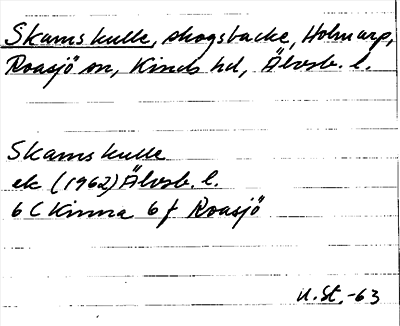 Skamskulle, skogsbacke, Holmarp,
Roasjö sn, Kinds hd, Älvsb. l.
Skamskulle
ek (1962) Älvsb. l.
6 C Kinna 6 f Roasjö
U.St.-63